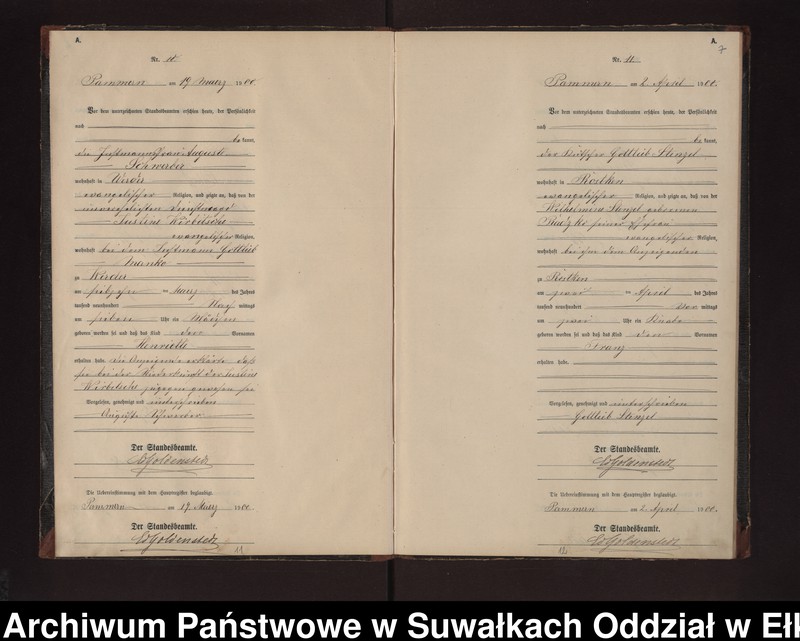 A.
Nr.
Pammern am 19 Maerz 1900.
Vor dem unterzeichneten Standesbeamten erschien heute, der Persönlichkeit
nach
bekannt,
die Instmannsfrau Auguste
Schwerder
wohnhaft in Werder
evangelischer Religion, und zeigte an, daß von der
unverehelichten Dienstmagd
evangelischer Religion,
wohnhaft bei dem Instmann Gottlieb
zu Werder
am Maerz des Jahres
tausend neunhundert Nachmittags
am sieben Uhr ein Mädchen
geboren worden sei und daß das Kind den Vornamen
Henriette
erhalten habe. Die Anzeigende erklärte, daß
sie bei der Niederkunft der
zugegen gewesen sei
Vorgelesen, genehmigt und unterschrieben
Auguste Schwerder
Der Standesbeamte.
Die Uebereinstimmung mit dem Hauptregister beglaubigt.
Pammern am 19 Maerz 1900.
Der Standesbeamte.
11
A.
7
Nr.
Pammern am 2 April 1900.
Vor dem unterzeichneten Standesbeamten erschien heute, der Persönlichkeit
nach
bekannt,
der Gottlieb Stenzel
wohnhaft in Rostken
evangelischer Religion, und zeigte an, daß von der
Wilhelmine Stenzel geborenen
seiner Ehefrau
evangelischer Religion,
wohnhaft bei ihm dem Anzeigenden
zu Rostken
am zwei April des Jahres
tausend neunhundert Vormittags
am zwei Uhr ein Knabe
geboren worden sei und daß das Kind den Vornamen
Franz
erhalten habe.
Vorgelesen, genehmigt und unterschrieben
Gottlieb Stenzel
Der Standesbeamte.
Die Uebereinstimmung mit dem Hauptregister beglaubigt.
Pammern am 2 April 1900.
Der Standesbeamte.
Archiwum Państwowe w Suwałkach Oddział w Eł